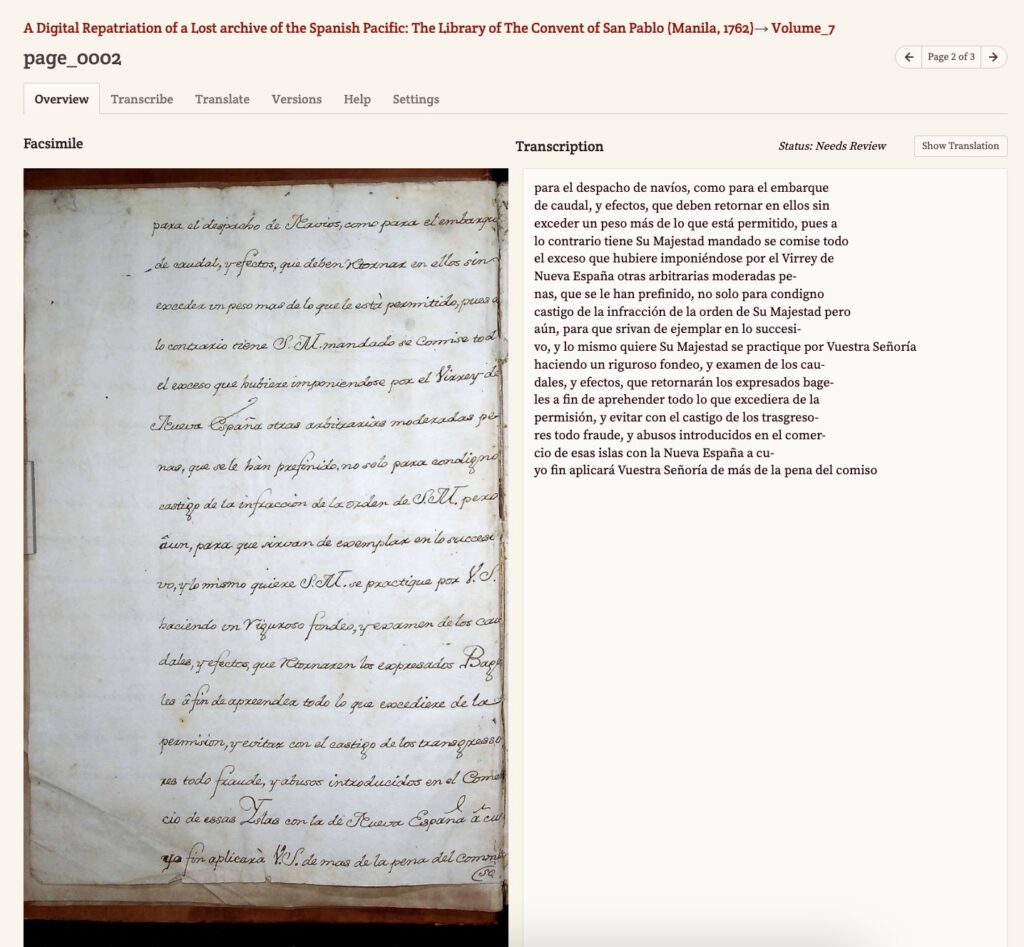 A Digital Repatriation of a Lost archive of the Spanish Pacific: The Library of The Convent of San Pablo (Manila, 1762)→ Volume_7
page_0002
← Page 2 of 3 →
Overview Transcribe Translate Versions Help Settings
Facsimile
para el despacho de Navios, como para el embarque
de caudal, y efectos, que deben retornar en ellos sin
exceder un peso mas de lo que le està permitido, pues a
lo contrario tiene S. M. mandado se Comise tod
el exceso que hubiere imponiendose por el Virrey de
Nueva España otras arbitrarias moderadas pe-
nas, que se le hàn prefinido, no solo para condigno
castigo de la infraccion de la orden de S. M. pero
âun, para que sirvan de exemplar en lo succesi
vo, y lo mismo quiere S. M. se practique por V. S.
haciendo un riguroso fondeo, y examen de los cau
dales, y efectos, que retornaren los expresados Bage
les â fin de apreender todo lo que excediere de la
permision, y evitar con el castigo de los transgresso
res todo fraude, y abusos introducidos en el Come
cio de essas Yslas con la de Nueva España â cu
yo fin aplicarà V. S. de mas de la pena del Comi
so
Transcription
Status: Needs Review
Show Translation
para el despacho de navíos, como para el embarque
de caudal, y efectos, que deben retornar en ellos sin
exceder un peso más de lo que está permitido, pues a
lo contrario tiene Su Majestad mandado se comise todo
el exceso que hubiere imponiéndose por el Virrey de
Nueva España otras arbitrarias moderadas pe-
nas, que se le han prefinido, no solo para condigno
castigo de la infracción de la orden de Su Majestad pero
aún, para que srivan de ejemplar en lo succesi-
vo, y lo mismo quiere Su Majestad se practique por Vuestra Señoría
haciendo un riguroso fondeo, y examen de los cau-
dales, y efectos, que retornarán los expresados bage-
les a fin de aprehender todo lo que excediera de la
permisión, y evitar con el castigo de los trasgreso-
res todo fraude, y abusos introducidos en el comer-
cio de esas islas con la Nueva España a cu-
yo fin aplicará Vuestra Señoría de más de la pena del comiso